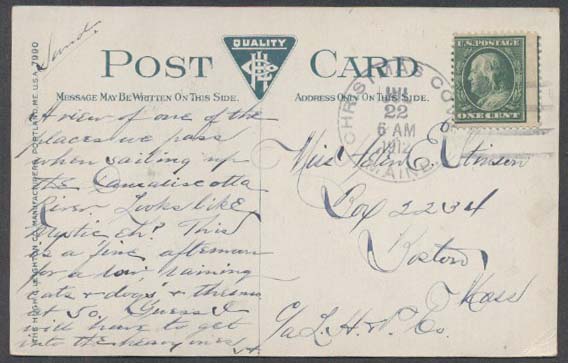 Sund.
POST CARD
QUALITY
MESSAGE MAY BE WRITTEN ON THIS SIDE.
ADDRESS ONLY ON THIS SIDE.
THE HUGH C. LEIGHTON CO., MANUFACTURERS, PORTLAND, ME. U.S.A. 7990
U.S. POSTAGE
ONE CENT
CHRISTMAS CO
JUL
22
6 AM
1912
MAINE.
A view of one of the
places we pass
when sailing up
the Damariscotta
River. Looks like
Mystic eh? This
is a fine afternoon
for a row, raining
cats & dogs &
at 50. Guess I
will have to get
into the heavy ones
Miss Helen E. Stinson
Box 2234
Boston
Mass
C/o L. H. & P. Co.